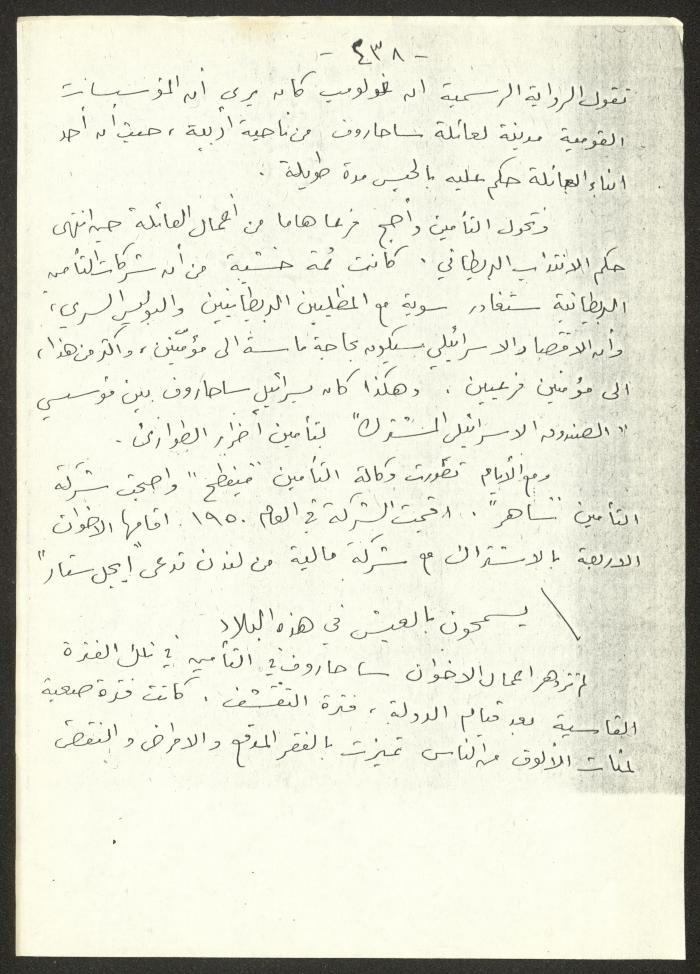 - ٤٣٨ -
تقول الرواية الرسمية ان غولومب كان يرى أن المؤسسات
القومية مدينة لعائلة ساحاروف من ناحية أدبية ، حيث أن أحد
ابناء العائلة حكم عليه بالحبس مدة طويلة .
وتحول التأمين وأصبح فرعا هاما من أعمال العائلة حين انتهى
حكم الانتداب البريطاني . كانت ثمة خشية من أن شركات التأمين
البريطانية ستغادر سوية مع المظليين البريطانيين والبوليس السري ،
وأن الاقتصاد الاسرائيلي سيكون بحاجة ماسة الى مؤمّنين ، واكثر من هذا ،
الى مؤمنين فرعيين . وهكذا كان يسرائيل ساحاروف بين مؤسسي
"الصندوق الاسرائيلي المشترك" لتأمين أضرار الطوارئ .
ومع الأيام تطورت وكالة التأمين "مينطح" واصبحت شركة
التأمين "ساهر" . اقيمت الشركة في العام ١٩٥٠ . اقامها الاخوان
الاربعة بالاشتراك مع شركة مالية من لندن تدعى "ايجل ستار"
يسمحون بالعيش في هذه البلاد
لم تزدهر اعمال الاخوان ساحاروف في التأمين في تلك الفترة
القاسية بعد قيام الدولة ، فترة التقشف . كانت فترة صعبة
لمئات الألوف من الناس تميزت بالفقر المدقع والامراض والنقص